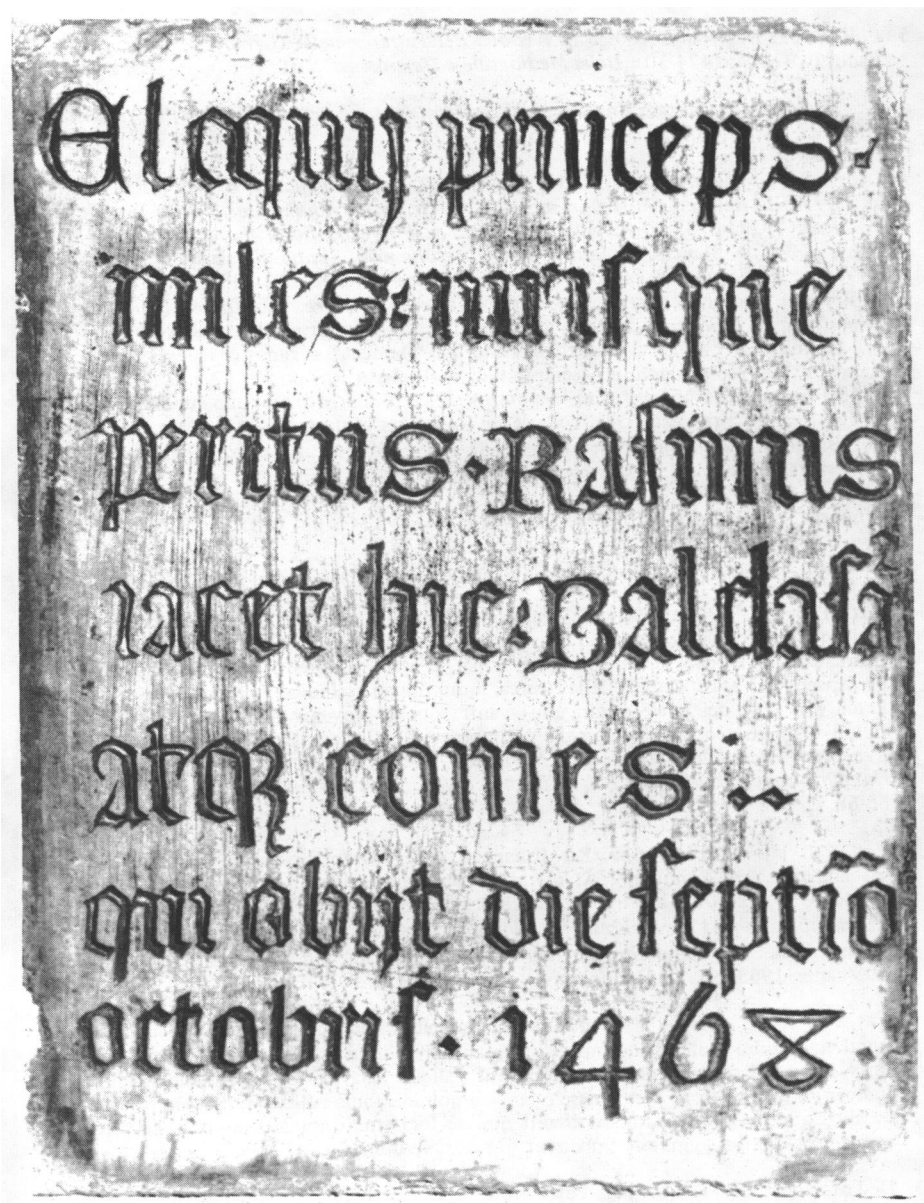 Eloquij princeps·
miles: iurisque
peritus· Rasinus
iacet hic: Baldasar
atqꝫ comes ··
qui obijt die septiō
octobris· 1468